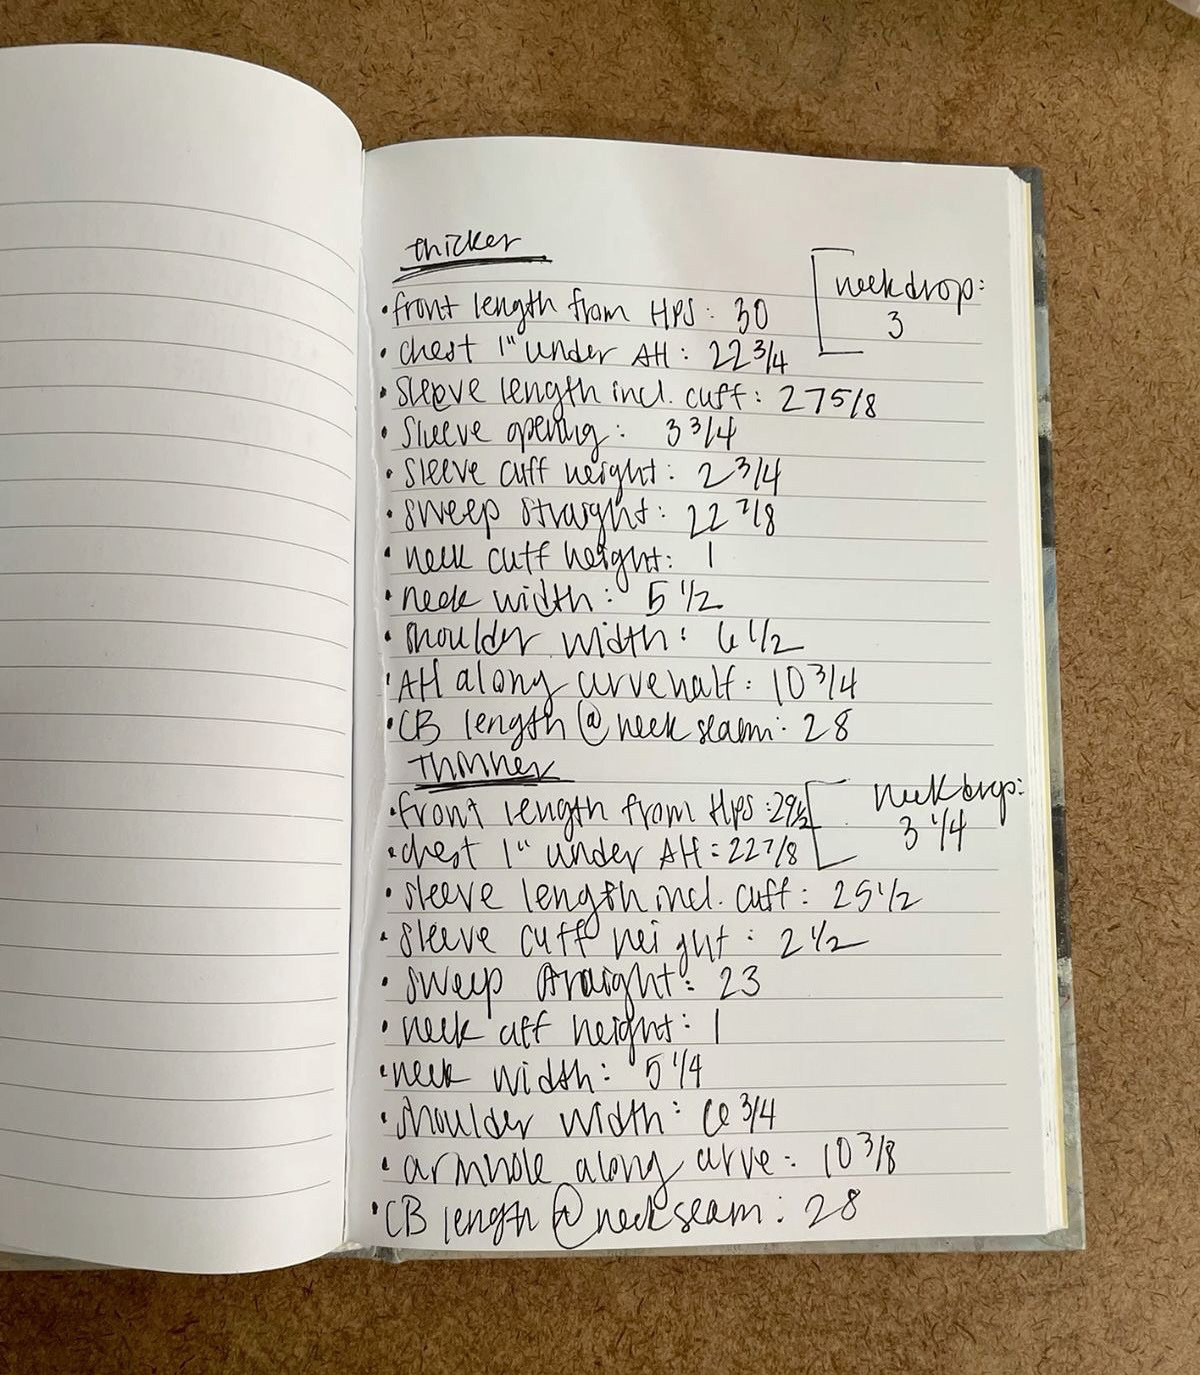 thicker
neck drop:
3
• front length from HPS: 30
• chest 1" under AH: 22 3/4
• sleeve length incl. cuff: 27 5/8
• sleeve opening: 3 3/4
• sleeve cuff height: 2 3/4
• sweep straight: 22 7/8
• neck cuff height: 1
• neck width: 5 1/2
• shoulder width: 6 1/2
• AH along curve half: 10 3/4
• CB length @ neck seam: 28
thinner
neck drop:
3 1/4
• front length from HPS: 29 1/2
• chest 1" under AH: 22 7/8
• sleeve length incl. cuff: 25 1/2
• sleeve cuff height: 2 1/2
• sweep straight: 23
• neck cuff height: 1
• neck width: 5 1/4
• shoulder width: 6 3/4
• armhole along curve: 10 3/8
• CB length @ neck seam: 28